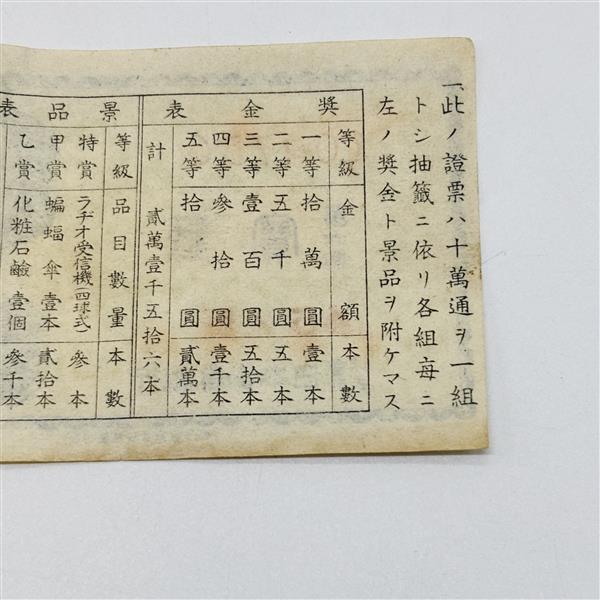 一、此ノ證票ハ十萬通ヲ一組
トシ抽籤ニ依リ各組每ニ
左ノ奬金ト景品ヲ附ケマス
奬金表
等級 金額 本數
一等 拾萬圓 壹本
二等 五千圓 五本
三等 壹百圓 五拾本
四等 參拾圓 壹千本
五等 拾圓 貳萬本
計 貳萬壹千五拾六本
景品表
等級 品目數量 本數
特賞 ラヂオ受信機(四球式) 參本
甲賞 蝙蝠傘壹本 貳拾本
乙賞 化粧石鹼壹個 參千本